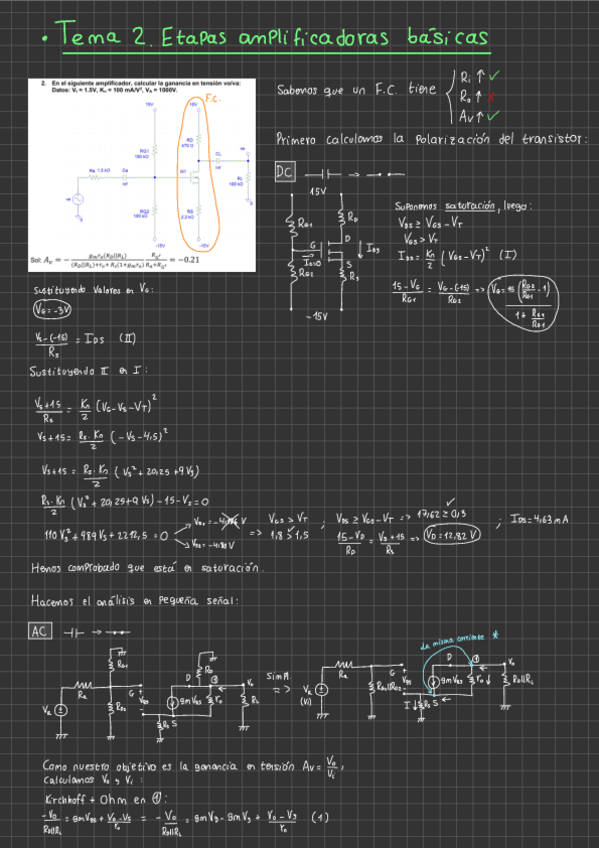 • Tema 2. Etapas amplificadoras básicas
2. En el siguiente amplificador, calcular la ganancia en tensión vo/va:
Datos: Vt = 1.5V, Kn = 100 mA/V², VA = 1000V.
F.C.
15V
15V
RG1
RD
470 Ω
CL
vo
Ra 1.0 kΩ
Ca
inf
inf
M1
RL
100 kΩ
RG2
100 kΩ
RS
2.2 kΩ
-15V
-15V
Sol: Av = − gm ro (RD||RL) / (RD||RL)+ro+Rs(1+gm ro) · = −0.21
Sabemos que un F.C. tiene
Ri ↑ ✓
Ro ↑ ✗
Av ↑ ✓
Primero calculamos la polarización del transistor:
DC
15V
RG1
RD
G
D
IDS
I=0
S
RG2
Rs
-15V
Suponemos saturación, luego:
VDS ≥ VGS - VT
VGS > VT
IDS = Kn/2 (VGS - VT)² (I)
15 - VG / RG1 = VG - (-15) / RG2 => VG = 15 (RG2/RG1 - 1) / 1 + RG2/RG1
Sustituyendo valores en VG:
VG = -3V
Vs - (-15) / Rs = IDS (II)
Sustituyendo II en I:
Vs + 15 / Rs = Kn/2 (VG - Vs - VT)²
Vs + 15 = Rs · Kn / 2 (- Vs - 4,5)²
Vs + 15 = Rs · Kn / 2 (Vs² + 20,25 + 9 Vs)
Rs · Kn / 2 (Vs² + 20,25 + 9 Vs) - 15 - Vs = 0
110 Vs² + 989 Vs + 2212,5 = 0
=> VGS > VT
1,8 > 1,5 ;
VDS ≥ VGS - VT => 17,62 ≥ 0,3 ✓
15 - VD / RD = Vs + 15 / Rs => VD = 12,82 V
; IDS = 4,63 mA
Hemos comprobado que está en saturación.
Hacemos el análisis en pequeña señal:
AC
La misma corriente *
RG1
RD
Ra
G
D
Vo
Va
RG2
VGS
gmVGS
ro
RL
S
Rs
=>
Ra
G
D
Vo
Va
(Vi)
RG1||RG2
VGS
gmVGS
ro
RD||RL
I
Rs
S
Como nuestro objetivo es la ganancia en tensión Av = Vo/Vi,
calculamos Vo y Vi:
Kirchhoff + Ohm en ①:
-Vo / RD||RL = gmVGS + Vo - Vs / ro = - Vo / RD||RL = gmVg - gmVs + Vo - Vs / ro (1)